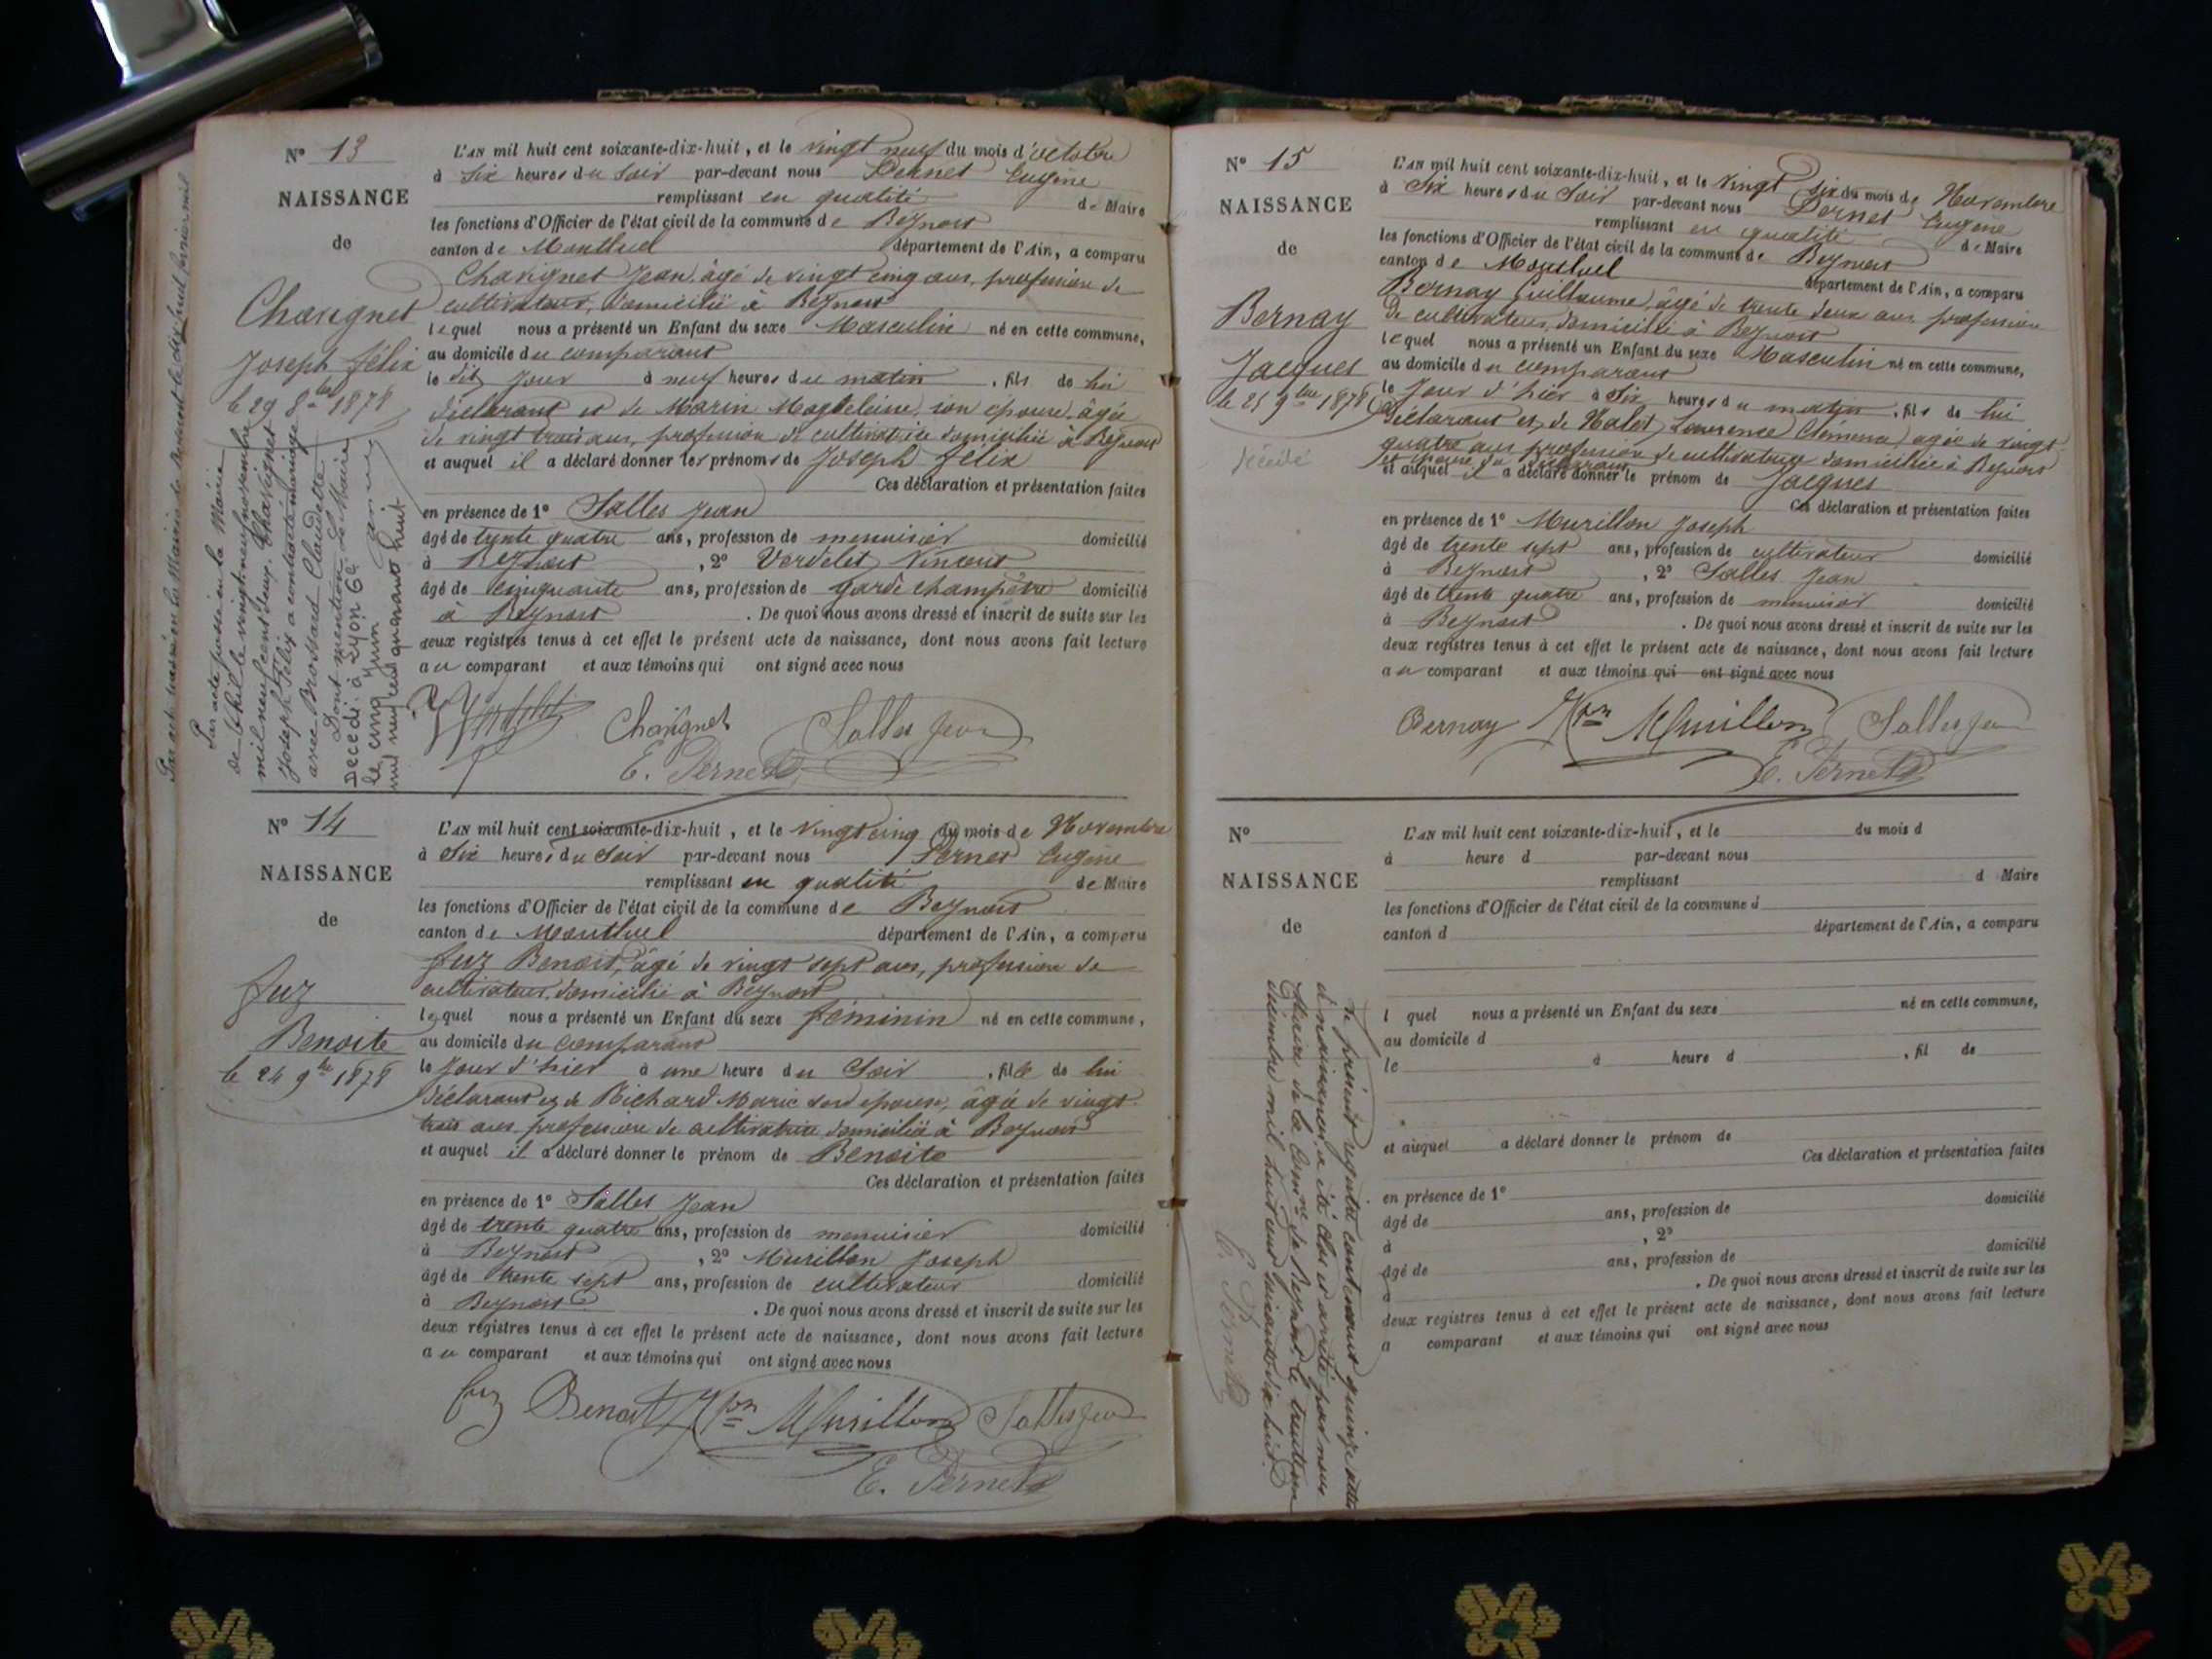 N° 13
NAISSANCE
de
Chavignet
Joseph félix
le 29 8bre 1878
Par acte passé en la Mairie
de Thil le vingt neuf novembre
mil neuf cent deux. Chavignet
Joseph Félix a contracté mariage
avec Brossard Claudette
Dont mention. Le Maire
Décédé à Lyon 6e
le cinq juin
mil neuf cent quarante huit
L'AN mil huit cent soixante-dix-huit, et le vingt neuf du mois d'octobre
à Six heures du Soir par-devant nous Pernet Eugène
remplissant en qualité de Maire
les fonctions d'Officier de l'état civil de la commune de Beynost
canton de Montluel département de l'Ain, a comparu
Chavignet Jean, âgé de vingt cinq ans, profession de
cultivateur, domicilié à Beynost
lequel nous a présenté un Enfant du sexe Masculin né en cette commune,
au domicile du comparant
le dit jour à neuf heures du matin, fils de lui
déclarant et de Marin Magdeleine, son épouse, âgée
de vingt trois ans, profession de cultivatrice domiciliée à Beynost
et auquel il a déclaré donner les prénoms de Joseph félix
Ces déclaration et présentation faites
en présence de 1° Salles Jean
âgé de trente quatre ans, profession de menuisier domicilié
à Beynost, 2° Verdelet Vincent
âgé de cinquante ans, profession de garde champêtre domicilié
à Beynost. De quoi nous avons dressé et inscrit de suite sur les
deux registres tenus à cet effet le présent acte de naissance, dont nous avons fait lecture
au comparant et aux témoins qui ont signé avec nous
Verdelet Chavignet Salles Jean
E. Pernet
N° 14
NAISSANCE
de
fuz
Benoite
le 24 9bre 1878
L'AN mil huit cent soixante-dix-huit, et le vingt cinq du mois de Novembre
à Six heures du Soir par-devant nous Pernet Eugène
remplissant en qualité de Maire
les fonctions d'Officier de l'état civil de la commune de Beynost
canton de Montluel département de l'Ain, a comparu
fuz Benoit, âgé de vingt sept ans, profession de
cultivateur, domicilié à Beynost
lequel nous a présenté un Enfant du sexe féminin né en cette commune,
au domicile du comparant
le jour d'hier à une heure du Soir, fille de lui
déclarant et de Richard Marie son épouse, âgée de vingt
trois ans, profession de cultivatrice domiciliée à Beynost
et auquel il a déclaré donner le prénom de Benoite
Ces déclaration et présentation faites
en présence de 1° Salles Jean
âgé de trente quatre ans, profession de menuisier domicilié
à Beynost, 2° Murillon Joseph
âgé de trente sept ans, profession de cultivateur domicilié
à Beynost. De quoi nous avons dressé et inscrit de suite sur les
deux registres tenus à cet effet le présent acte de naissance, dont nous avons fait lecture
au comparant et aux témoins qui ont signé avec nous
fuz Benoit Jph Murillon Salles Jean
E. Pernet
N° 15
NAISSANCE
de
Bernay
Jacques
le 25 9bre 1878
décédé
L'AN mil huit cent soixante-dix-huit, et le vingt six du mois de Novembre
à Six heures du Soir par-devant nous Pernet Eugène
remplissant en qualité de Maire
les fonctions d'Officier de l'état civil de la commune de Beynost
canton de Montluel département de l'Ain, a comparu
Bernay Guillaume, âgé de trente deux ans profession
de cultivateur, domicilié à Beynost
lequel nous a présenté un Enfant du sexe Masculin né en cette commune,
au domicile du comparant
le jour d'hier à Six heures du matin, fils de lui
déclarant et de Halet Laurence Clémence, âgée de vingt
quatre ans profession de cultivatrice domiciliée à Beynost
et épouse du déclarant
et auquel il a déclaré donner le prénom de Jacques
Ces déclaration et présentation faites
en présence de 1° Murillon Joseph
âgé de trente sept ans, profession de cultivateur domicilié
à Beynost, 2° Salles Jean
âgé de trente quatre ans, profession de menuisier domicilié
à Beynost. De quoi nous avons dressé et inscrit de suite sur les
deux registres tenus à cet effet le présent acte de naissance, dont nous avons fait lecture
au comparant et aux témoins qui ont signé avec nous
Bernay Jph Murillon Salles Jean
E. Pernet
N°
NAISSANCE
de
L'AN mil huit cent soixante-dix-huit, et le du mois d
à heure d par-devant nous
remplissant d Maire
les fonctions d'Officier de l'état civil de la commune d
canton d département de l'Ain, a comparu
l quel nous a présenté un Enfant du sexe né en cette commune,
au domicile d
le à heure d, fil de
et auquel a déclaré donner le prénom de
Ces déclaration et présentation faites
en présence de 1° domicilié
âgé de ans, profession de
à, 2°
âgé de ans, profession de domicilié
à. De quoi nous avons dressé et inscrit de suite sur les
deux registres tenus à cet effet le présent acte de naissance, dont nous avons fait lecture
a comparant et aux témoins qui ont signé avec nous
Le présent registre contenant quinze actes
de naissances a été clos et arrêté par nous
Maire de la Comne de Beynost le trente un
décembre mil huit cent soixante dix huit.
E. Pernet